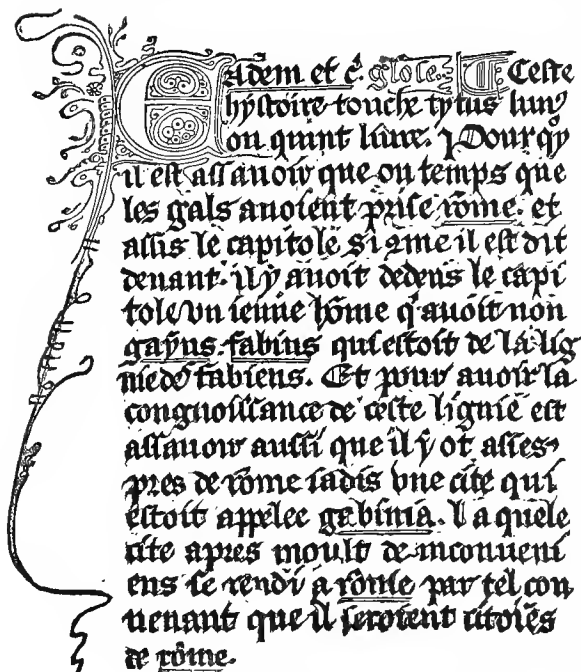 Eadem et c̃. glose. Ceste
hystoire touche tytus liuꝰ
ou quint liure. Pour qͥy
il est assauoir que ou temps que
les gals auoient prise rõme. et
assis le capitole si cõme il est dit
deuant. il y auoit dedens le capi
tole vn ienne hõme q̃ auoit non
gayus. fabius qui estoit de la lig
nie de fabiens. Et pour auoir la
congnoissance de ceste lignie est
assauoir aussi que il y ot asses
pres de rõme iadis vne cite qui
estoit appelee gabinia. La quele
cite apres moult de inconueni
ens se rendi a rõme par tel con
uenant que il seroient citoiẽs
de rõme.